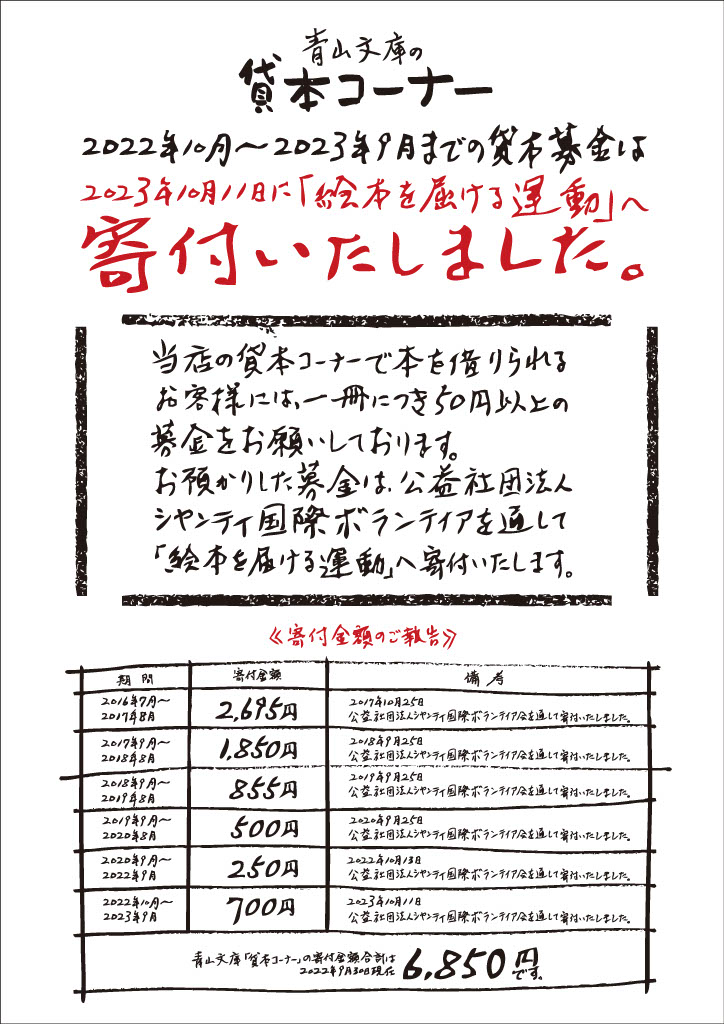 青山文庫の
貸本コーナー
2022年10月〜2023年9月までの貸本募金は
2023年10月11日に「絵本を届ける運動」へ
寄付いたしました。
当店の貸本コーナーで本を借りられる
お客様には、一冊につき50円以上の
募金をお願いしております。
お預かりした募金は、公益社団法人
シャンティ国際ボランティアを通して
「絵本を届ける運動」へ寄付いたします。
《寄付金額のご報告》
期間 寄付金額 備考
2016年7月〜
2017年8月
2,695円
2017年10月25日
公益社団法人シャンティ国際ボランティア会を通して寄付いたしました。
2017年9月〜
2018年8月
1,850円
2018年9月25日
公益社団法人シャンティ国際ボランティア会を通して寄付いたしました。
2018年9月〜
2019年8月
855円
2019年9月25日
公益社団法人シャンティ国際ボランティア会を通して寄付いたしました。
2019年9月〜
2020年8月
500円
2020年9月25日
公益社団法人シャンティ国際ボランティア会を通して寄付いたしました。
2020年9月〜
2022年9月
250円
2022年10月13日
公益社団法人シャンティ国際ボランティア会を通して寄付いたしました。
2022年10月〜
2023年9月
700円
2023年10月11日
公益社団法人シャンティ国際ボランティア会を通して寄付いたしました。
青山文庫「貸本コーナー」の寄付金額合計は
2022年9月30日現在
6,850円です。